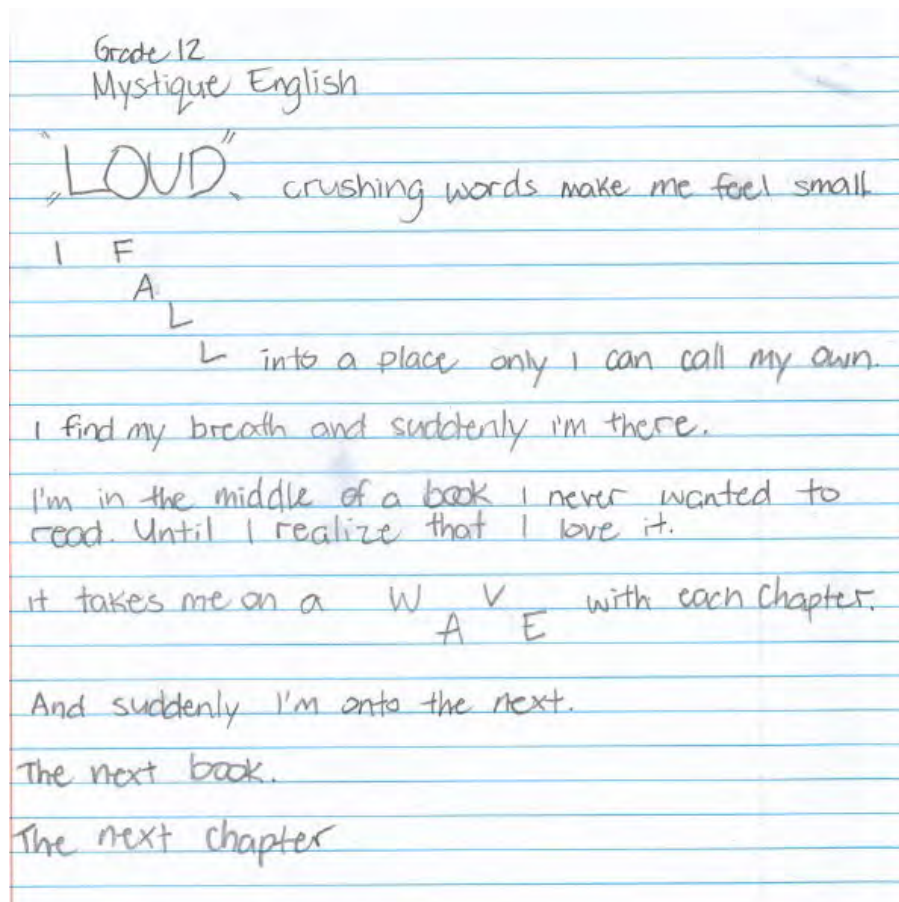 Grade 12
Mystique English
"LOUD" crushing words make me feel small
I F
A
L
L into a place only I can call my own.
I find my breath and suddenly i'm there.
I'm in the middle of a book I never wanted to
read. Until I realize that I love it.
it takes me on a W A V E with each Chapter.
And suddenly I'm onto the next.
The next book.
The next chapter